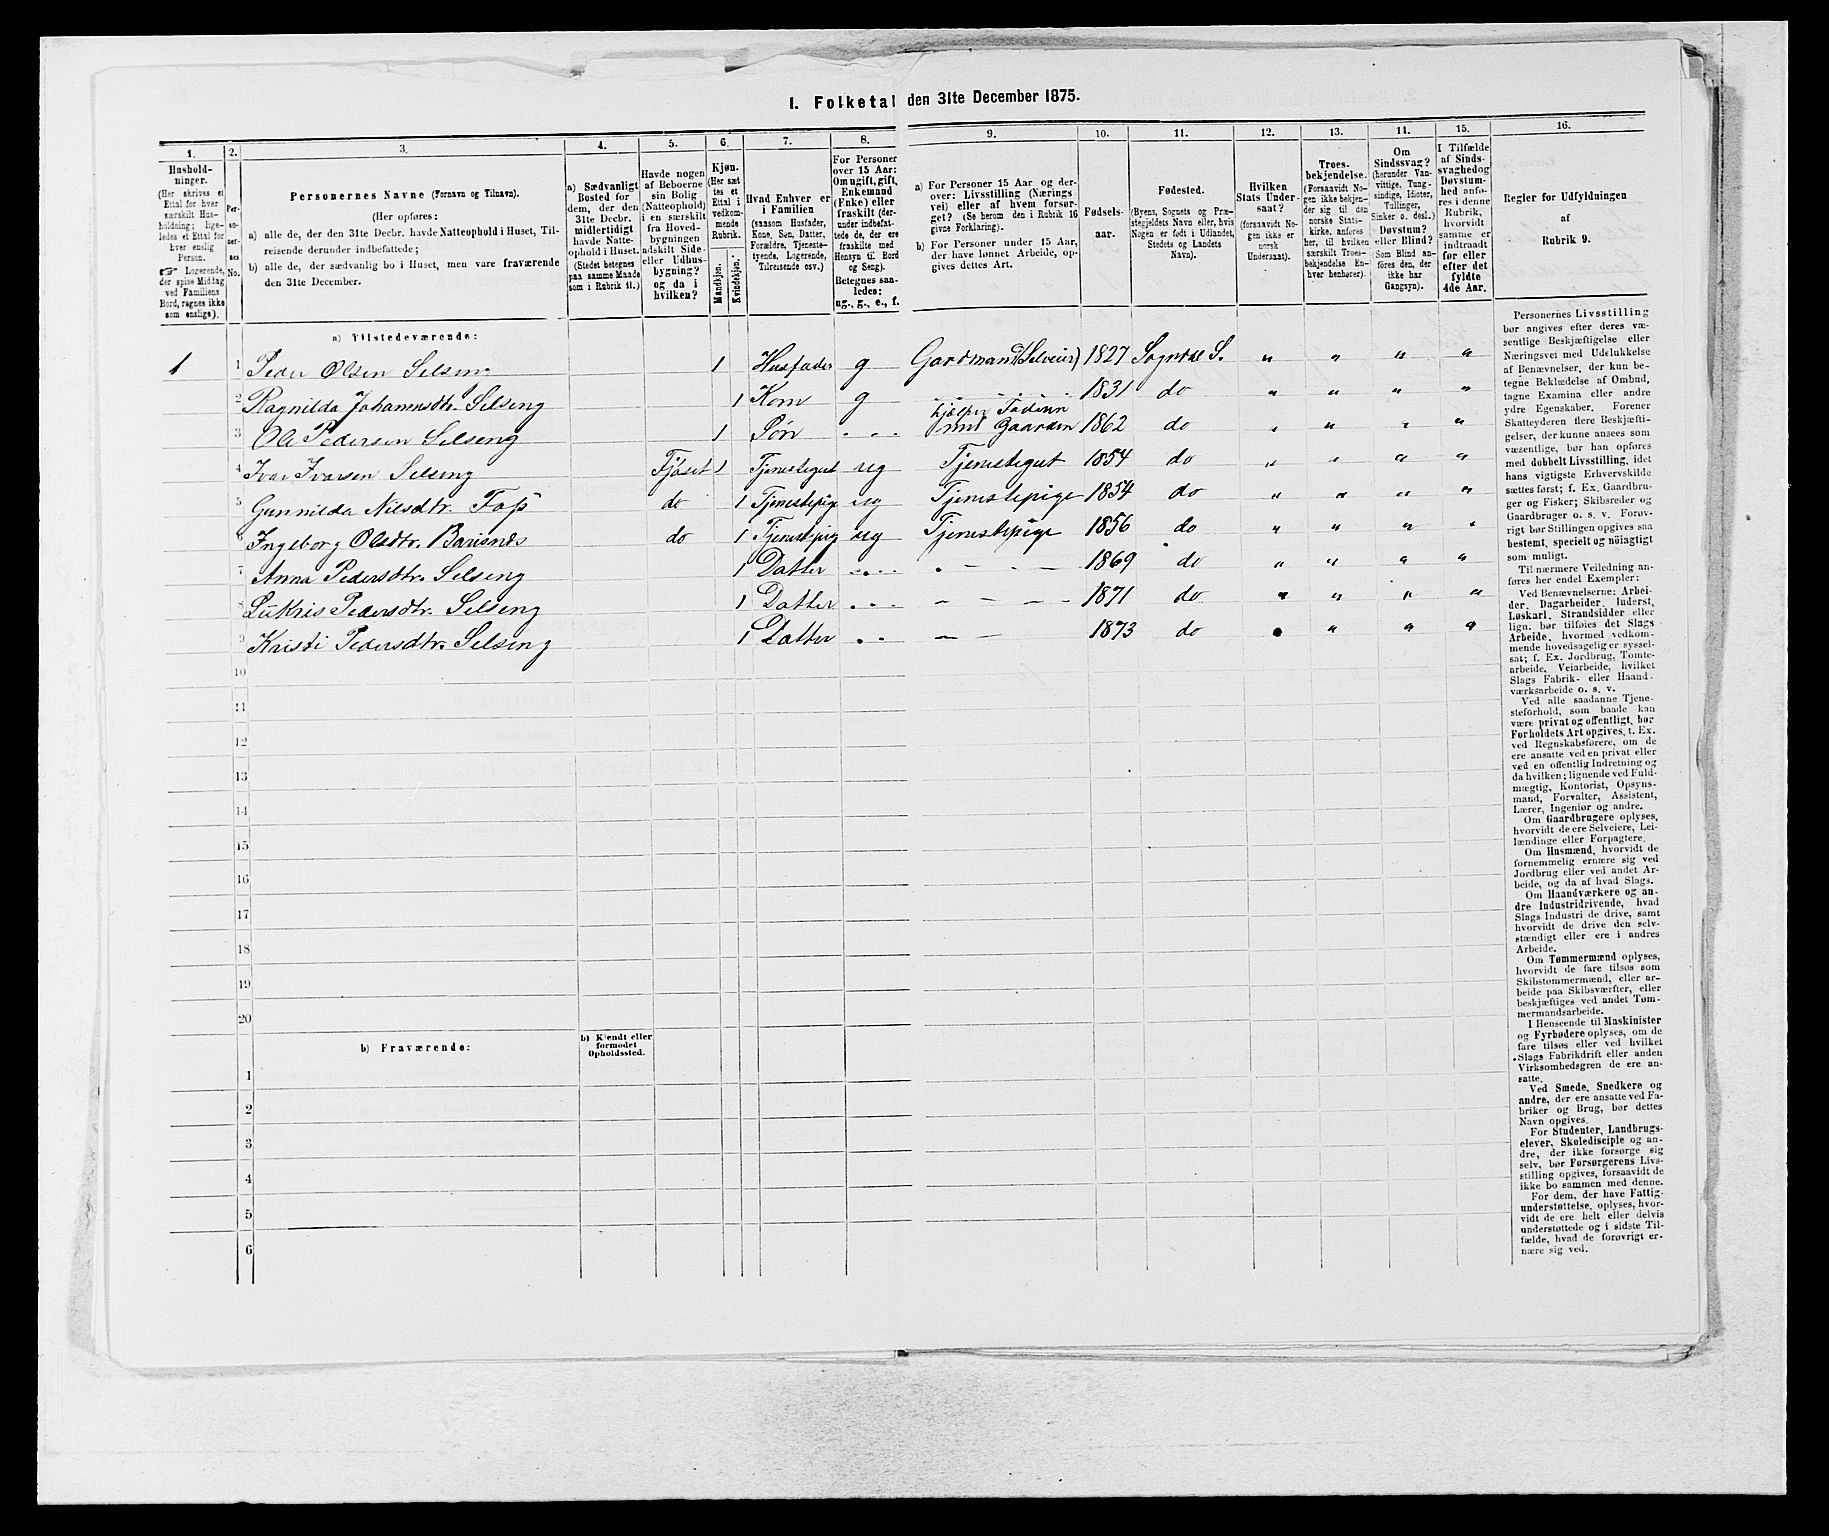 I. Folketal den 31te December 1875.
1. 2. 3. 4. 5. 6. 7. 8. 9. 10. 11. 12. 13. 14. 15. 16.
Hushold-
ninger.
(Her skrives et
Ettal for hver
særskilt Hus-
holdning; lige-
ledes et Ettal for
hver enslig
Person.
☞ Logerende,
der spise Middag
ved Familiens
Bord, regnes ikke
som enslige).
Per-
so-
ner-
nes
No.
Personernes Navne (Fornavn og Tilnavn).
(Her opføres:
a) alle de, der den 31te Decbr. havde Natteophold i Huset, Til-
reisende derunder indbefattede;
b) alle de, der sædvanlig bo i Huset, men vare fraværende
den 31te December.
a) Sædvanligt
Bosted for
dem, der den
31te Decbr.
midlertidigt
havde Natte-
ophold i Huset.
(Stedet betegnes
paa samme Maade
som i Rubrik 11.)
Havde nogen
af Beboerne
sin Bolig
(Natteophold)
i en særskilt
fra Hoved-
bygningen
adskilt Side-
eller Udhus-
bygning?
og da i
hvilken?
Kjøn.
(Her sæt-
tes et
Ettal i
vedkom-
mende
Rubrik.)
Mandkjøn.
Kvindekjøn.
Hvad Enhver er
i Familien
(saasom Husfader,
Kone, Søn, Datter,
Forældre, Tjeneste-
tyende, Logerende,
Tilreisende osv.)
For Personer
over 15 Aar:
Om ugift, gift,
Enkemand
(Enke) eller
fraskilt (der-
under indbefat-
tede de, der ere
fraskilte med
Hensyn til Bord
og Seng).
Betegnes saa-
ledes:
ug., g., e., f.
a) For Personer 15 Aar og der-
over: Livsstilling (Nærings-
vei) eller af hvem forsør-
get? (Se herom den i Rubrik 16
givne Forklaring).
b) For Personer under 15 Aar,
der have lønnet Arbeide, op-
gives dettes Art.
Fødsels-
aar.
Fødested.
(Byens, Sognets og Præ-
stegjeldets Navn eller, hvis
Nogen er født i Udlandet,
Stedets og Landets
Navn).
Hvilken
Stats Under-
saat?
(forsaavidt No-
gen ikke er
norsk
Undersaat).
Troes-
bekjendelse.
(Forsaavidt No-
gen ikke bekjen-
der sig til den
norske Stats-
kirke, anføres
her, til hvilken
særskilt Troes-
bekjendelse En-
hver henhører).
Om
Sindssvag?
(herunder Van-
vittige, Tung-
sindige, Idioter,
Tullinger,
Sinker o. desl.)
Døvstum?
eller Blind?
(Som Blind an-
føres den, der
ikke har
Gangsyn).
I Tilfælde
af Sinds-
svaghed og
Døvstum-
hed anfø-
res i denne
Rubrik,
hvorvidt
samme er
indtraadt
før eller
efter det
fyldte
4de Aar.
Regler for Udfyldningen
af
Rubrik 9.
a) Tilstedeværende:
1 1 Peder Olsen Selseng 1 Husfader g Gardmand (Selveier) 1827 Sogndal S. " " " "
2 Ragnilda Johannsdtr. Selseng 1 Kone g 1831 do " " " "
3 Ole Pedersen Selseng 1 Søn hjælper Faderen med Gaarden 1862 do " " " "
4 Ivar Ivarsen Selseng Fjøset 1 Tjenstegut ug Tjenstegut 1854 do " " " "
5 Gunnilda Nilsdtr. do 1 Tjenstepige ug Tjenstepige 1854 do " " " "
6 Ingeborg Olsdtr. do 1 Tjenstepig ug Tjenstepige 1856 do " " " "
7 Anna Pedersdtr. Selseng 1 Datter 1869 do " " " "
8 Pedersdtr. Selseng 1 Datter 1871 do " " " "
9 Kristi Pedersdtr. Selseng 1 Datter 1873 do " " " "
10
11
12
13
14
15
16
17
18
19
20
b) Fraværende:
b) Kjendt eller
formodet
Opholdssted.
1
2
3
4
5
6
Personernes Livsstilling
bør angives efter deres væ-
sentlige Beskjæftigelse eller
Næringsvei med Udelukkelse
af Benævnelser, der kun be-
tegne Beklædelse af Ombud,
tagne Examina eller andre
ydre Egenskaber. Forener
Skatteyderen flere Beskjæfti-
gelser, der kunne ansees som
væsentlige, bør han opføres
med dobbelt Livsstilling, idet
hans vigtigste Erhvervskilde
sættes først; f. Ex. Gaardbru-
ger og Fisker; Skibsreder og
Gaardbruger o. s. v. Forøv-
rigt bør Stillingen opgives saa
bestemt, specielt og nöiagtigt
som muligt.
Til nærmere Veiledning an-
føres her endel Exempler:
Ved Benævnelserne: Arbei-
der, Dagarbeider, Inderst,
Løskarl, Strandsidder eller
lign. bør tilføies det Slags
Arbeide, hvormed vedkom-
mende hovedsagelig er syssel-
sat; f. Ex. Jordbrug, Tomte-
arbeide, Veiarbeide, hvilket
Slags Fabrik- eller Haand-
værksarbeide o. s. v.
Ved alle saadanne Tjene-
steforhold, som baade kan
være privat og offentligt, bør
Forholdets Art opgives, t. Ex.
ved Regnskabsførere, om de
ere ansatte ved en privat eller
ved en offentlig Indretning og
da hvilken; lignende ved Fuld-
mægtig, Kontorist, Opsyns-
mand, Forvalter, Assistent,
Lærer, Ingeniør og andre.
Om Gaardbrugere oplyses,
hvorvidt de ere Selveiere, Lei-
lændinge eller Forpagtere.
Om Husmænd, hvorvidt de
fornemmelig ernære sig ved
Jordbrug eller ved andet Ar-
beide, og da af hvad Slags.
Om Haandværkere og an-
dre Industridrivende, hvad
Slags Industri de drive, samt
hvorvidt de drive den selv-
stændigt eller ere i andres
Arbeide.
Om Tømmermænd oplyses,
hvorvidt de fare tilsøs som
Skibstømmermænd, eller ar-
beide paa Skibsværfter, eller
beskjæftiges ved andet Tøm-
mermandsarbeide.
I Henseende til Maskinister
og Fyrbødere oplyses, om de
fare tilsøs eller ved hvilket
Slags Fabrikdrift eller anden
Virksomhedsgren de ere an-
satte.
Ved Smede, Snedkere og
andre, der ere ansatte ved Fa-
briker og Brug, bør dettes
Navn opgives.
For Studenter, Landbrugs-
elever, Skoledisciple og an-
dre, der ikke forsørge sig
selv, bør Forsørgerens Livs-
stilling opgives, forsaavidt de
ikke bo sammen med denne.
For dem, der have Fattig-
understøttelse, oplyses, hvor-
vidt de ere helt eller delvis
understøttede og i sidste Til-
fælde, hvad de forøvrigt er-
nære sig ved.